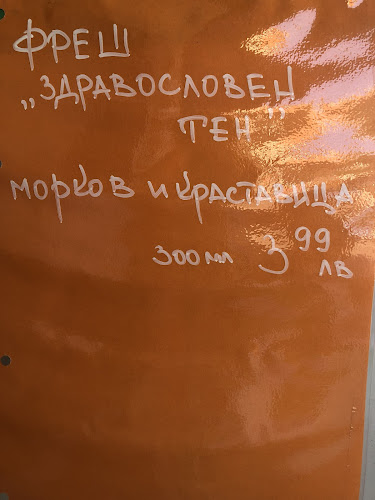 ФРЕШ
„ЗДРАВОСЛОВЕН
ТЕН"
МОРКОВ И КРАСТАВИЦА
300мл 3 99 лв